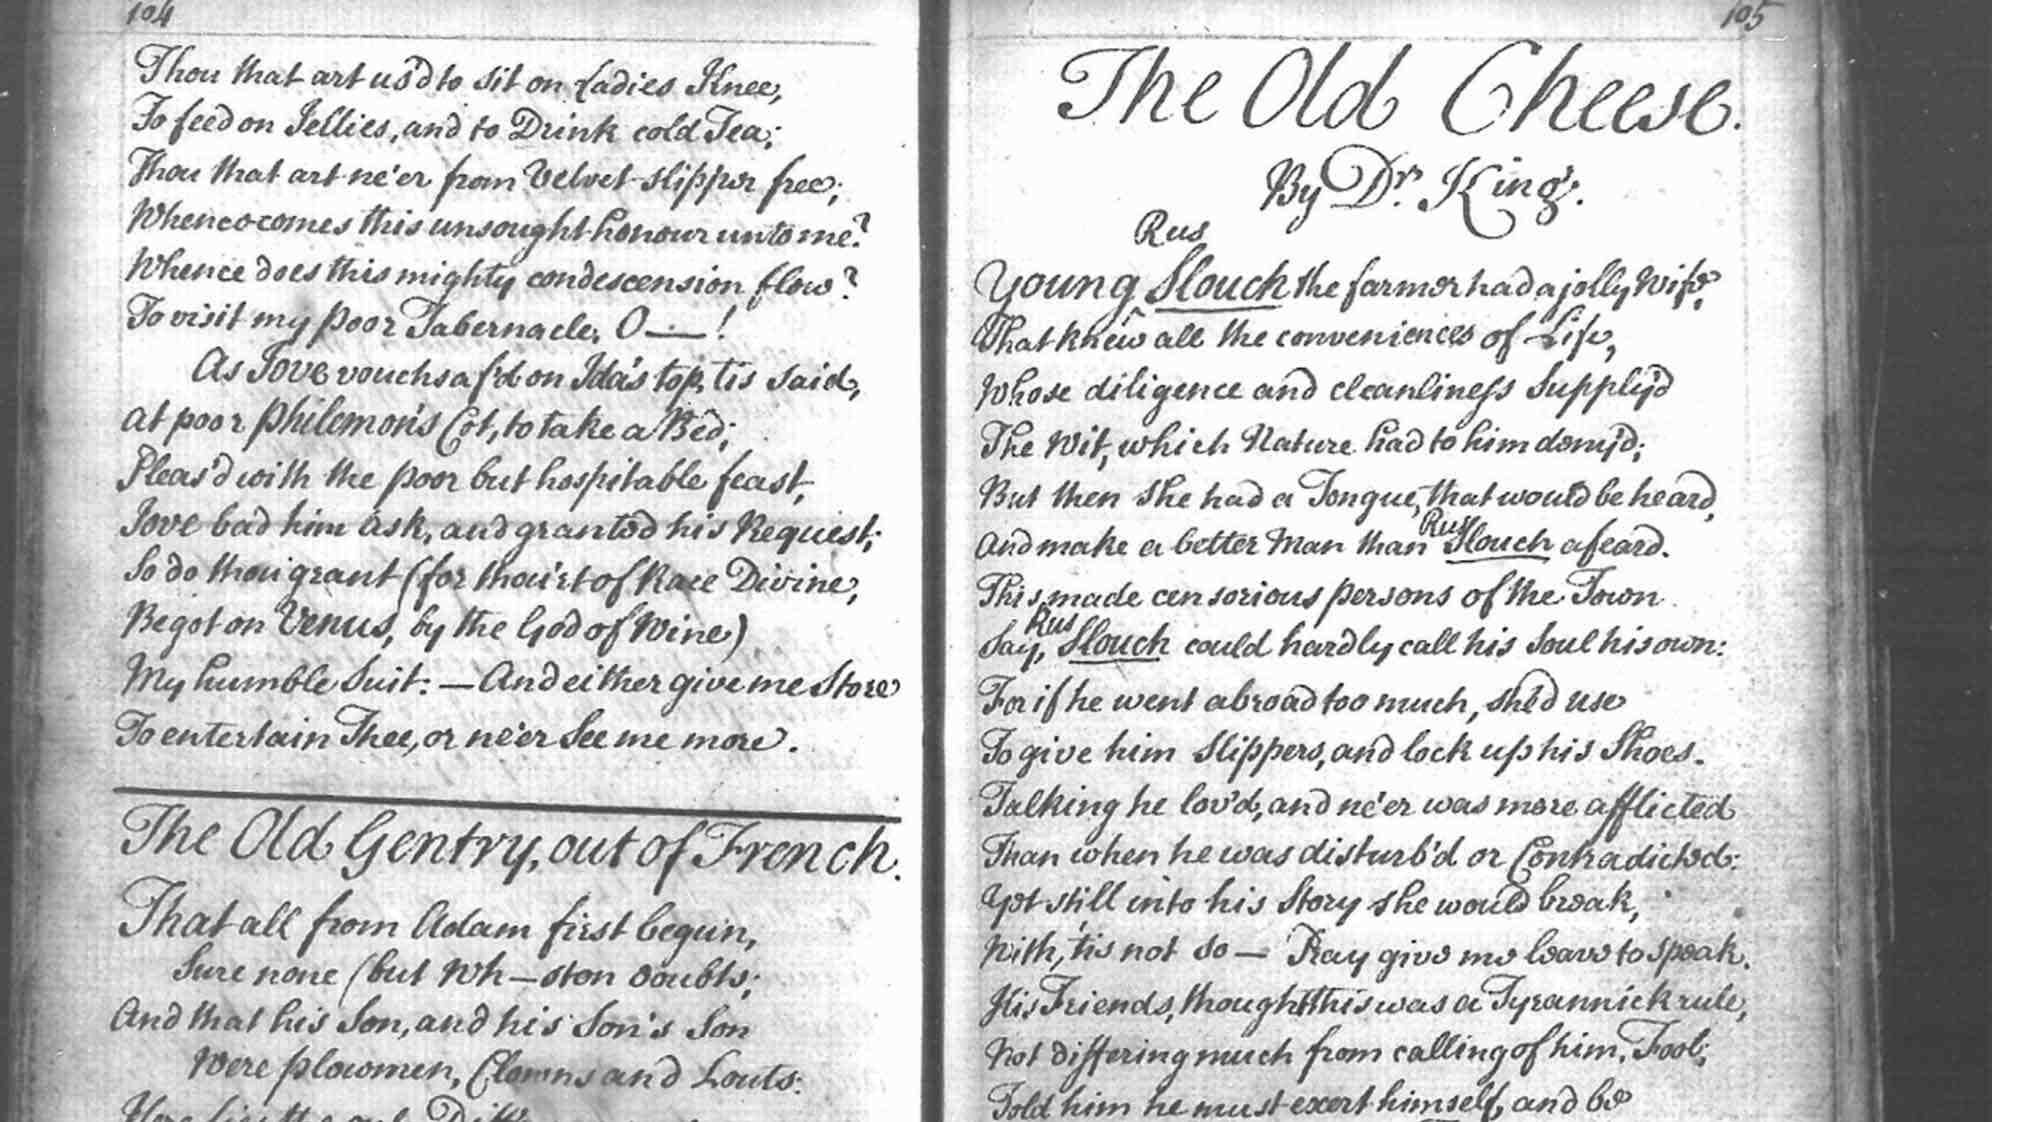 104
Thou that art us'd to sit on Ladies Knee,
To feed on Jellies, and to Drink cold Tea;
Thou that art ne'er from Velvet slipper free;
Whence comes this unsought honour unto me?
Whence does this mighty condescension flow?
To visit my poor Tabernacle, O—!
As Jove vouchsaf'd on Ida's top, tis said,
At poor Philemon's Cot, to take a Bed;
Pleas'd with the poor but hospitable feast,
Jove bad him ask, and granted his Request;
So do thou grant (for thou'rt of Race Divine,
Begot on Venus, by the God of Wine)
My humble Suit: — And either give me Store
To entertain Thee, or ne'er See me more.
The Old Gentry, out of French.
That all from Adam first begun,
Sure none (but Wh—ston doubts;
And that his Son, and his Son's Son
Were plowmen, Clowns and Louts:
105
The Old Cheese.
By Dr. King.
Rus
Young Slouch the farmer had a jolly Wife,
That knew all the conveniences of Life,
Whose diligence and cleanliness Supply'd
The Wit, which Nature had to him deny'd;
But then she had a Tongue, that would be heard,
Rus
And make a better Man than Slouch afeard.
This made censorious persons of the Town
Rus
Say, Slouch could hardly call his Soul his own:
For if he went abroad too much, she'd use
To give him Slippers, and lock up his Shoes.
Talking he lov'd, and ne'er was more afflicted
Than when he was disturb'd or Contradicted:
Yet still into his Story she would break,
With, 'tis not so — Pray give me leave to speak.
His Friends, thought this was a Tyrannick rule,
Not differing much from calling of him, Fool;
Told him he must exert himself, and be